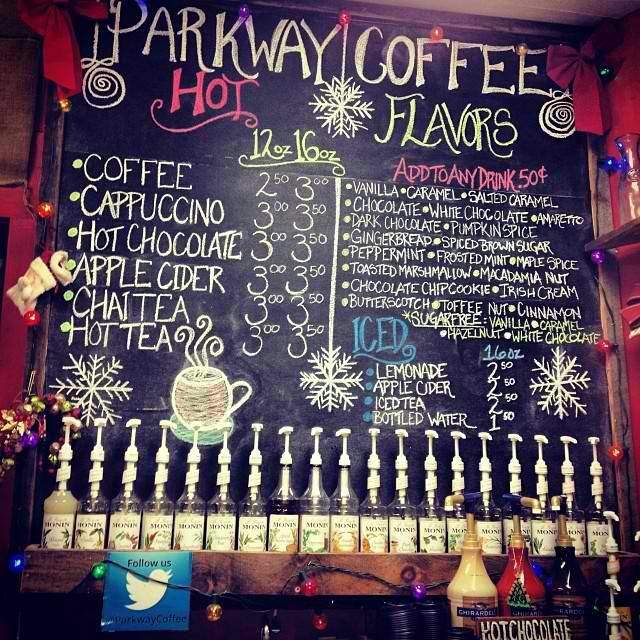 PARKWAY COFFEE
HOT
12oz 16oz
COFFEE 2.50 3.00
CAPPUCCINO 3.00 3.50
HOT CHOCOLATE 3.00 3.50
APPLE CIDER 3.00 3.50
CHAI TEA 3.00 3.50
HOT TEA 3.00 3.50
FLAVORS
ADD TO ANY DRINK .50¢
VANILLA • CARAMEL • SALTED CARAMEL
• CHOCOLATE • WHITE CHOCOLATE • AMARETTO
DARK CHOCOLATE • PUMPKIN SPICE
GINGERBREAD • SPICED BROWN SUGAR
PEPPERMINT • FROSTED MINT • MAPLE SPICE
• TOASTED MARSHMALLOW • MACADAMIA NUT
• CHOCOLATE CHIP COOKIE • IRISH CREAM
• BUTTERSCOTCH • TOFFEE NUT • CINNAMON
*SUGARFREE: VANILLA • CARAMEL
• HAZELNUT • WHITE CHOCOLATE
ICED
16oz
• LEMONADE 2.50
• APPLE CIDER 2.50
• ICED TEA 2.50
• BOTTLED WATER 1.50
MONIN MONIN MONIN MONIN MONIN MONIN MONIN MONIN MONIN MONIN MONIN MONIN MONIN MONIN MONIN MONIN MONIN
Follow us
@ParkwayCoffee
GHIRARDELLI
GHIRARDELLI
HOT CHOCOLATE